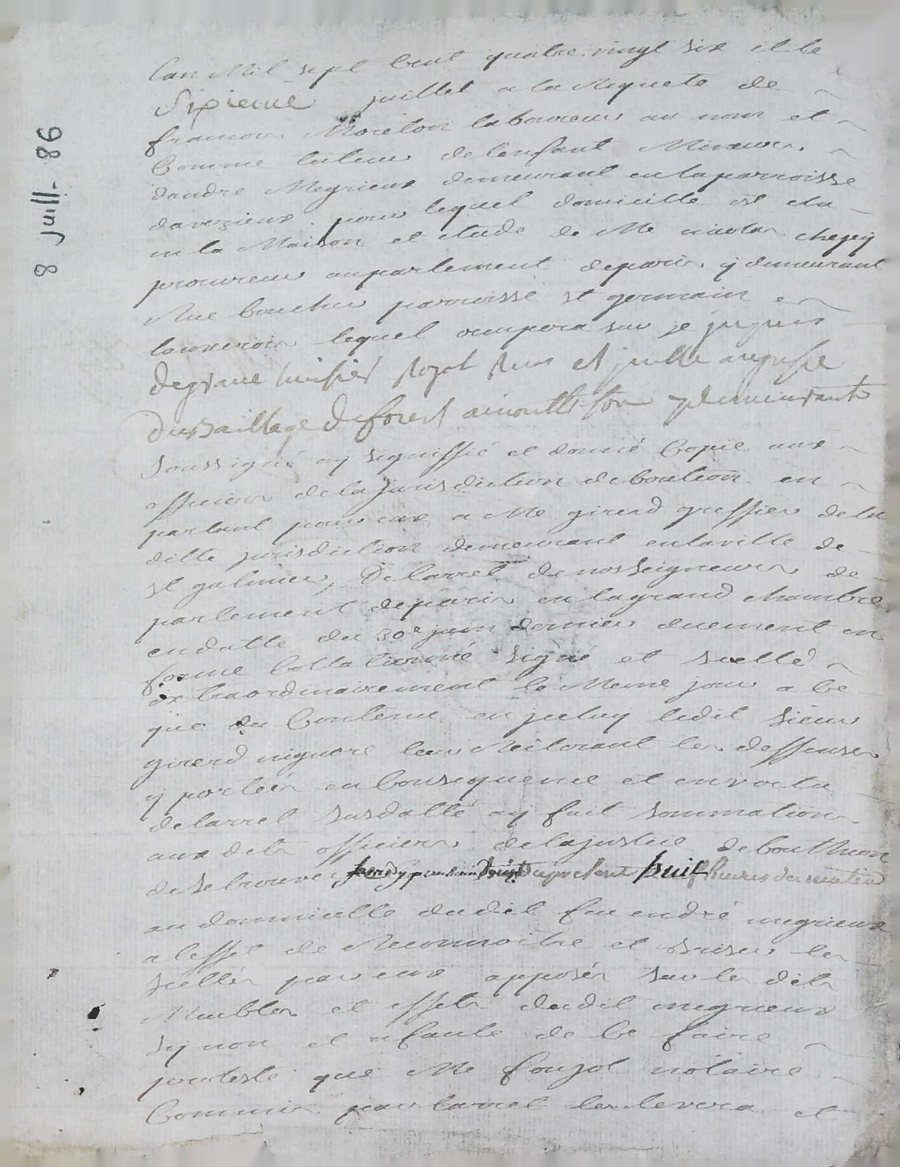 8 juill. 86
Lan Mil sept Cent quatre vingt six et le
Sixieme juillet a la Requete de
francois Morelon laboureur au nom et
Comme tuteur de lenfant Mineur
dandré Megrieux demeurant en la parroisse
daveizieux pour lequel domicille est élu
en la Maison et etude de Me nicolas
procureur au parlement de paris y demeurant
Rue boucher parroisse st germain
lauxerrois lequel occupera sur je
huissier Royal
du Baillage de forest a y demeurant
Soussigné ay signiffié et donné Copie aux
officiers de la jurisdiction de boutéon en
parlant pour eux a Me girerd greffier de la
ditte jurisdiction demeurant en la ville de
st galmier, De larret de nosseigneurs de
parlement de paris en la grand Chambre
en datte du 30e juin dernier duement en
forme Collationné signé et scellé
extraordinairement le Meme jour a ce
que du Contenu en jceluy ledit sieur
girerd nignore leur Reiterant les deffenses
y portées en Consequence et en vertu
de larret susdatté ay fait sommation
aux dits officiers de la justice de bouthéon
de se trouver du present huit heures du matin
au domicille dudit feu andré megrieux
a leffet de Reconnoitre et briser les
scellés par eux apposés sur les dits
Meubles et effets dudit megrieux
sy non et a faute de ce faire
proteste que Me fonjol notaire
Commis par larret les levera et